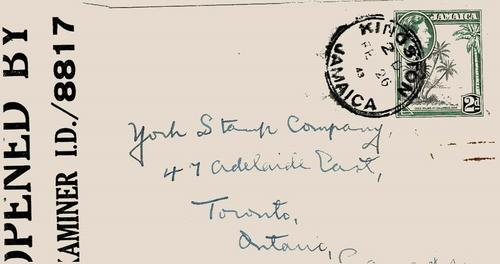 OPENED BY
EXAMINER I.D./8817
KINGSTON
2
FE 26
43
JAMAICA
JAMAICA
2d
York Stamp Company,
47 Adelaide East,
Toronto,
Ontario,